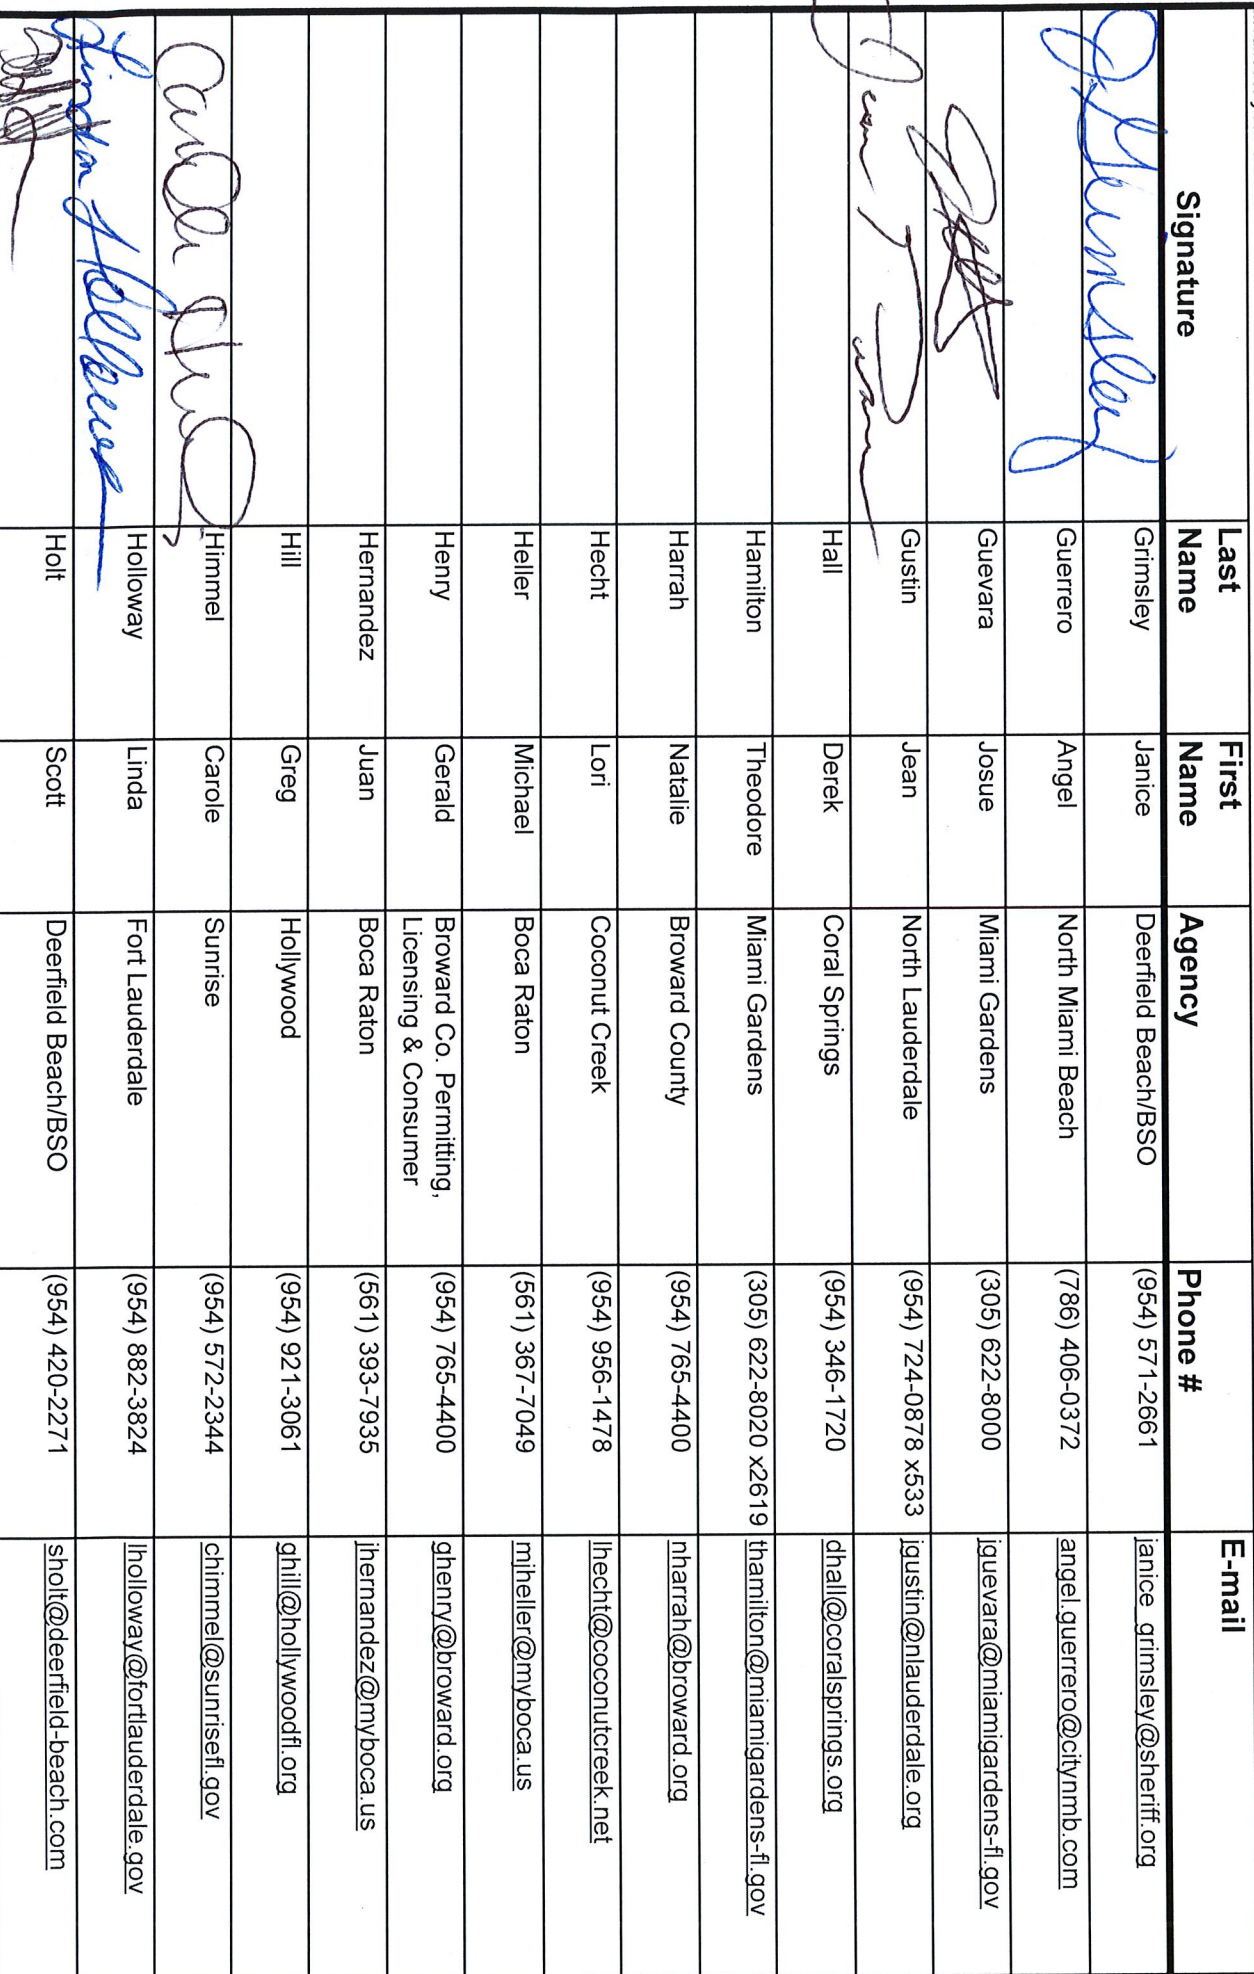 Signature Last Name First Name Agency Phone # E-mail
JGrimsley Grimsley Janice Deerfield Beach/BSO (954) 571-2661 janice_grimsley@sheriff.org
Guerrero Angel North Miami Beach (786) 406-0372 angel.guerrero@citynmb.com
Guevara Josue Miami Gardens (305) 622-8000 jguevara@miamigardens-fl.gov
Gustin Jean North Lauderdale (954) 724-0878 x533 jgustin@nlauderdale.org
Hall Derek Coral Springs (954) 346-1720 dhall@coralsprings.org
Hamilton Theodore Miami Gardens (305) 622-8020 x2619 thamilton@miamigardens-fl.gov
Harrah Natalie Broward County (954) 765-4400 nharrah@broward.org
Hecht Lori Coconut Creek (954) 956-1478 lhecht@coconutcreek.net
Heller Michael Boca Raton (561) 367-7049 mjheller@myboca.us
Henry Gerald Broward Co. Permitting, (954) 765-4400 ghenry@broward.org
Licensing & Consumer
Hernandez Juan Boca Raton (561) 393-7935 jhernandez@myboca.us
Hill Greg Hollywood (954) 921-3061 ghill@hollywoodfl.org
Himmel Carole Sunrise (954) 572-2344 chimmel@sunrisefl.gov
Linda Holloway Holloway Linda Fort Lauderdale (954) 882-3824 lholloway@fortlauderdale.gov
Holt Scott Deerfield Beach/BSO (954) 420-2271 sholt@deerfield-beach.com